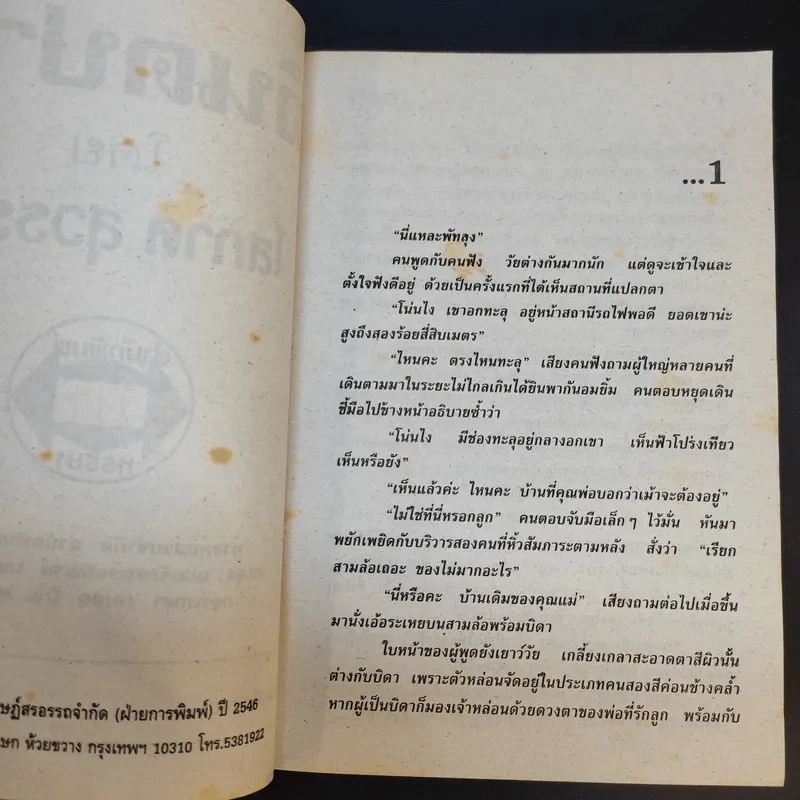 ษฎ์สรอรรถจำกัด (ฝ่ายการพิมพ์) ปี 2546
ษก ห้วยขวาง กรุงเทพฯ 10310 โทร.5381922
...1
“นี่แหละพัทลุง”
คนพูดกับคนฟัง วัยต่างกันมากนัก แต่ดูจะเข้าใจและ
ตั้งใจฟังดีอยู่ ด้วยเป็นครั้งแรกที่ได้เห็นสถานที่แปลกตา
“โน่นไง เขาอกทะลุ อยู่หน้าสถานีรถไฟพอดี ยอดเขาน่ะ
สูงถึงสองร้อยสี่สิบเมตร”
“ไหนคะ ตรงไหนทะลุ” เสียงคนฟังถามผู้ใหญ่หลายคนที่
เดินตามมาในระยะไม่ไกลเกินได้ยินพากันอมยิ้ม คนตอบหยุดเดิน
ชี้มือไปข้างหน้าอธิบายซ้ำว่า
“โน่นไง มีช่องทะลุอยู่กลางอกเขา เห็นฟ้าโปร่งเทียว
เห็นหรือยัง”
“เห็นแล้วค่ะ ไหนคะ บ้านที่คุณพ่อบอกว่าเม้าจะต้องอยู่”
“ไม่ใช่ที่นี่หรอกลูก” คนตอบจับมือเล็กๆ ไว้มั่น หันมา
พยักเพยิดกับบริวารสองคนที่หิ้วสัมภาระตามหลัง สั่งว่า “เรียก
สามล้อเถอะ ของไม่มากอะไร”
“นี่หรือคะ บ้านเดิมของคุณแม่” เสียงถามต่อไปเมื่อขึ้น
มานั่งเอ้อระเหยบนสามล้อพร้อมบิดา
ใบหน้าของผู้พูดยังเยาว์วัย เกลี้ยงเกลาสะอาดตาสีผิวนั้น
ต่างกับบิดา เพราะตัวหล่อนจัดอยู่ในประเภทคนสองสีค่อนข้างคล้ำ
หากผู้เป็นบิดาก็มองเจ้าหล่อนด้วยดวงตาของพ่อที่รักลูก พร้อมกับ